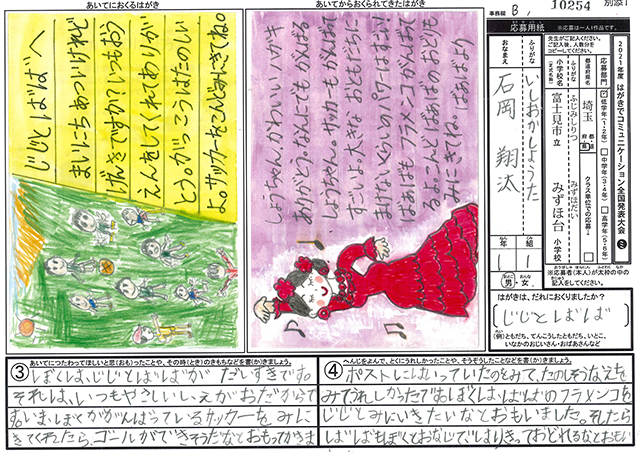 あいてにおくるはがき
じじとばばへ
まいにちあついけれど
げんきですか?いつもおう
えんをしてくれてありが
とう。がっこうはたのしい
よ。サッカーをこんどみにきてね。
あいてからおくられてきたはがき
しょうちゃん、かわいいハガキ
ありがとう。なんにでもがんばる
しょうちゃん。サッカーもがんばって
すごいよ。大きなおともだちに
まけないくらいのパワーはすごい!
ばぁばもフラメンコがんばって
るよ。こんどばぁばのおどりも
みにきてね。ばぁばより
事務局
B
10254
別添1
応募用紙
※応募は一人1作品です。
先生がご記入ください。
ご記入後、人数分を
コピーしてください。
2021年度 はがきでコミュニケーション全国発表大会
応募部門
低学年(1・2年)
中学年(3・4年)
高学年(5・6年)
都道府県名
埼玉
都道府県
クラス単位での応募
小学校名
(正式名称)
ふりがな
ふじみしりつ
みずほだい
富士見市立
みずほ台
小学校
※応募者(本人)が太枠の中の記入をしてください。
おなまえ
ふりがな
いしおかしょうた
石岡 翔汰
1年
1組
男・女
はがきは、だれにおくりましたか?
じじとばば
(例)ともだち、てんこうしたともだち、いとこ、
いなかのおじいさん・おばあさんなど
③
あいてにつたわってほしいと思(おも)ったことや、その時(とき)のきもちなどを書(か)きましょう。
ぼくは、じじとばばが だいすきです。
それは、いつもやさしいえがおだからで
す。いま、ぼくががんばっているサッカーをみに
きてくれたら、ゴールができそうだなとおもってかきま
④
へんじをよんで、とくにうれしかったことや、そうぞうしたことなどを書(か)きましょう。
ポストにはいっていたのをみて、たのしそうなえを
みてうれしかったです。ぼくは、ばばのフラメンコを
じじとみにいきたいなとおもいました。そしたら
ばばもぼくとおなじではりきっておどれるなとおもい